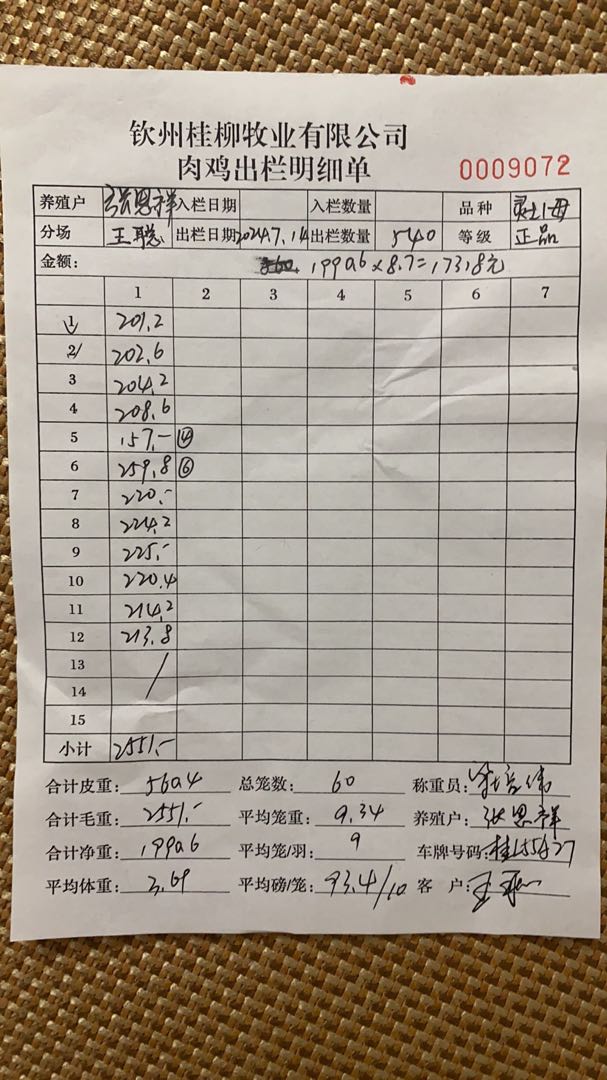 钦州桂柳牧业有限公司
肉鸡出栏明细单 0009072
养殖户 张恩祥 入栏日期 入栏数量 品种 灵土1母
分场 王聪 出栏日期 2024.7.14 出栏数量 540 等级 正品
金额: 1990.6×8.7=17318元
1 2 3 4 5 6 7
1 201.2
2 202.6
3 204.2
4 208.6
5 157.- ④
6 259.8 ⑥
7 220.-
8 224.2
9 225.-
10 220.4
11 214.2
12 213.8
13
14
15
小计 2551.-
合计皮重: 560.4 总笼数: 60 称重员:
合计毛重: 2551.- 平均笼重: 9.34 养殖户: 张恩祥
合计净重: 1990.6 平均笼/羽: 9 车牌号码:
平均体重: 3.69 平均磅/笼: 93.4/10 客 户: